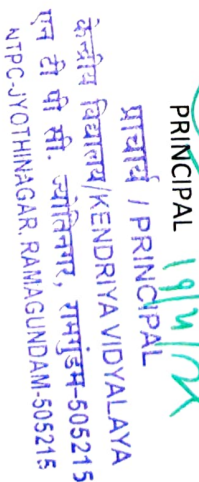 PRINCIPAL
प्राचार्य / PRINCIPAL
केन्द्रीय विद्यालय/KENDRIYA VIDYALAYA
एन टी पी सी. ज्योतिनगर, रामगुंडम-505215
NTPC-JYOTHINAGAR, RAMAGUNDAM-505215